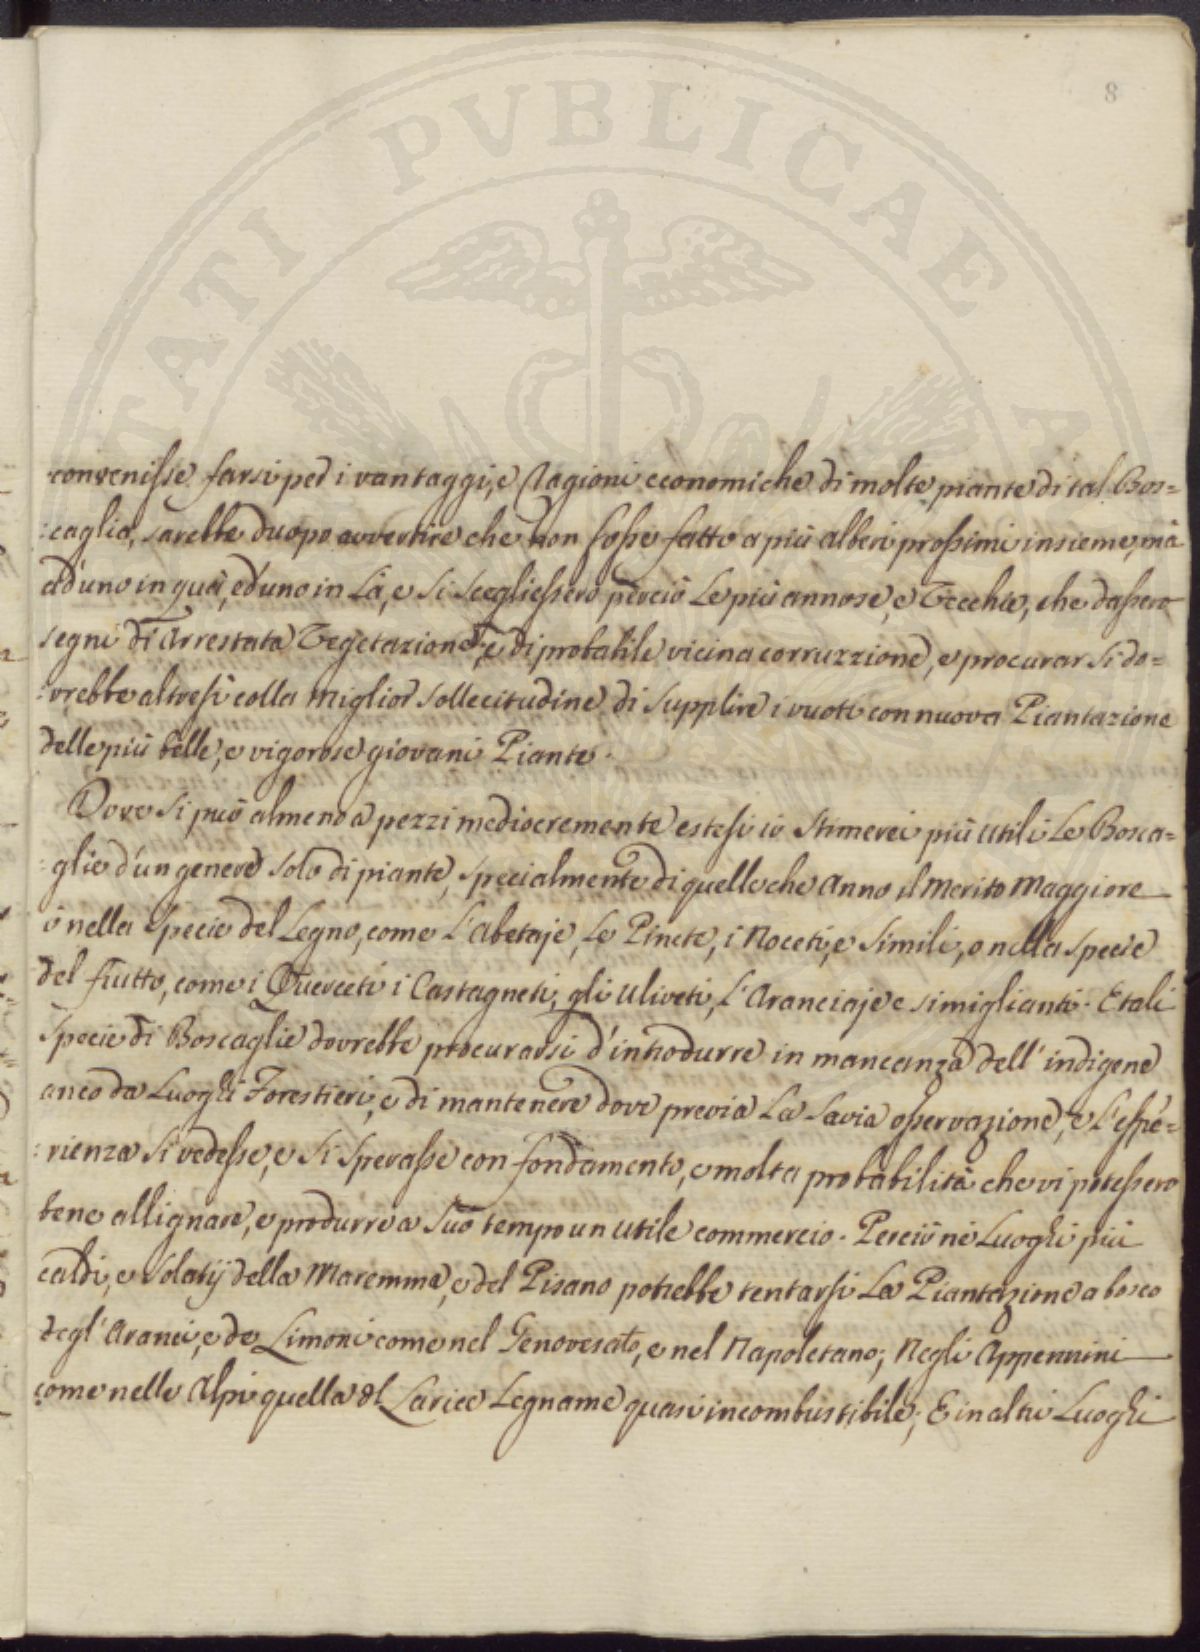 8
PVBLICAE
TATI
convenisse farsi per i vantaggi, e Ragioni economiche di molte piante di tal Bos=
:caglia, sarebbe duopo avvertire che non fosse fatto a più alberi prossimi insieme, mà
ad'uno in quà, ed'uno in Là, e si scegliessero perciò Le più annose, e Vecchie, che dassero
segni di Arrestata Vegetazione, e di probabile vicina corruzzione, e procurar si do=
:vrebbe altresì colla miglior sollecitudine di supplire i vuoti con nuova Piantazione
delle più belle, e vigorose giovani Piante.
Dove si può almeno a pezzi mediocremente estesi io stimerei più utili Le Bosca=
:glie d'un genere solo di piante, specialmente di quelle che anno il merito maggiore
ò nella specie del Legno, come l'Abetaje, Le Pinete, i Noceti, e simili, o nella specie
del frutto, come i Querceti i Castagneti, gli Uliveti, L'Aranciaje e simiglianti. E tali
specie di Boscaglie dovrebbe procurarsi d'introdurre in mancanza dell'indigene
anco da Luoghi Forestieri, e di mantenere dove previa La savia osservazione, e L'espe=
:rienza si vedesse, e si sperasse con fondamento, e molta probabilità che vi potessero
bene allignare, e produrre a suo tempo un utile commercio. Perciò nè Luoghi più
caldi, e solatij della Maremma, e del Pisano potrebbe tentarsi La Piantazione a bosco
degl'Aranci, e de Limoni come nel Genovesato, e nel Napoletano; Negli Appennini
come nelle Alpi quella del Larice Legname quasi incombustibile; E in altri Luoghi